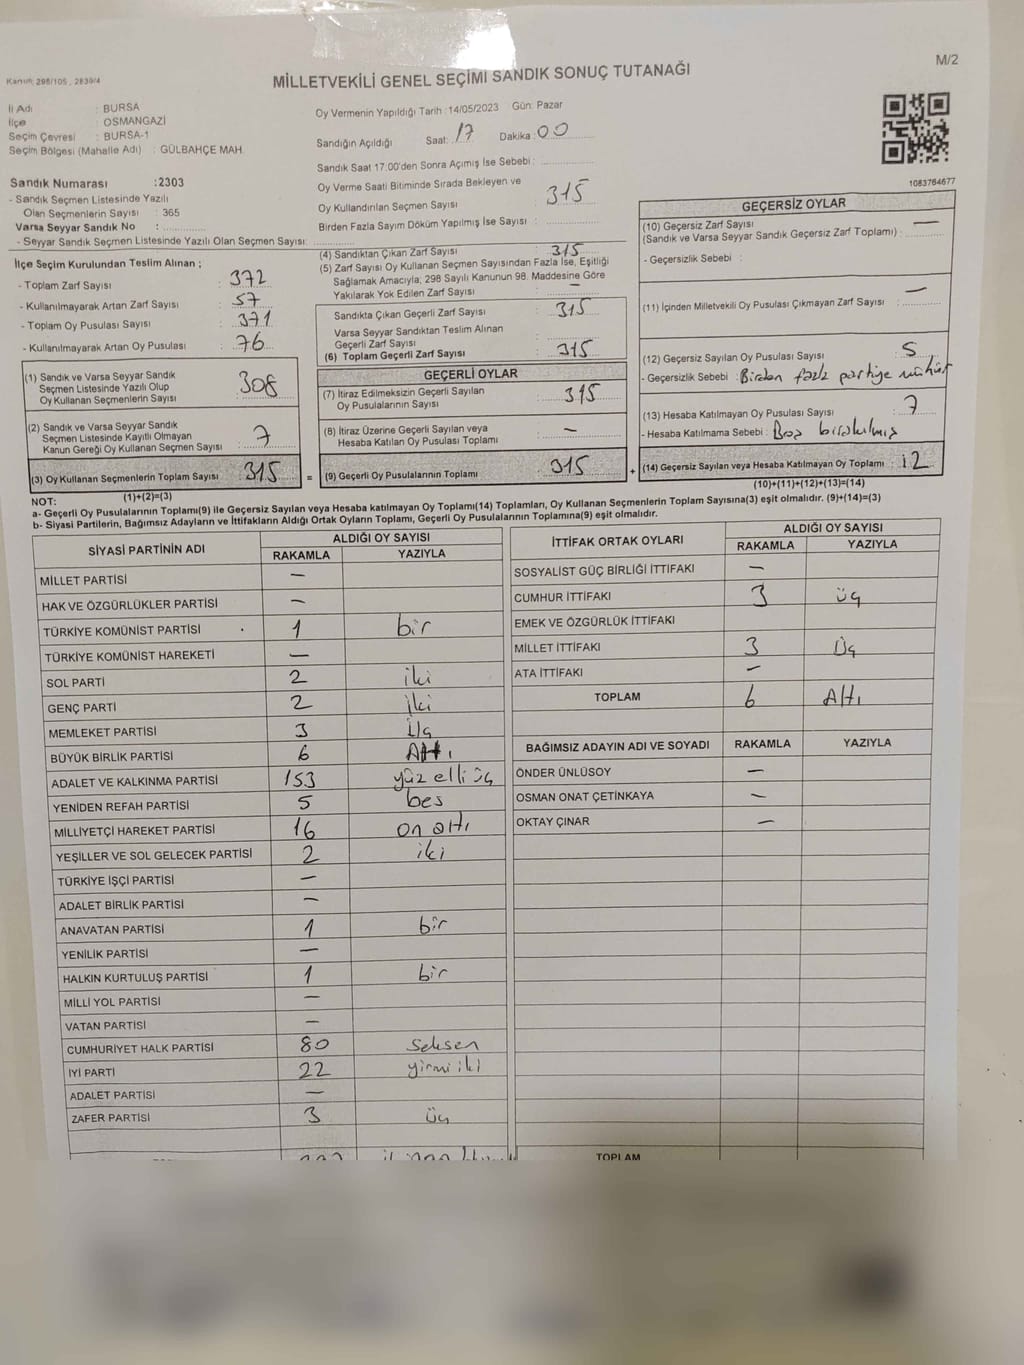 M/2
Kanun: 298/105, 2839/4
MİLLETVEKİLİ GENEL SEÇİMİ SANDIK SONUÇ TUTANAĞI
İl Adı : BURSA
İlçe : OSMANGAZİ
Seçim Çevresi : BURSA-1
Seçim Bölgesi (Mahalle Adı) : GÜLBAHÇE MAH.
Oy Vermenin Yapıldığı Tarih : 14/05/2023 Gün: Pazar
Sandığın Açıldığı Saat: 17 Dakika : 00
Sandık Saat 17:00'den Sonra Açımış İse Sebebi :
Oy Verme Saati Bitiminde Sırada Bekleyen ve
Oy Kullandırılan Seçmen Sayısı 315
Birden Fazla Sayım Döküm Yapılmış İse Sayısı :
1083764677
Sandık Numarası : 2303
- Sandık Seçmen Listesinde Yazılı
Olan Seçmenlerin Sayısı : 365
Varsa Seyyar Sandık No :
- Seyyar Sandık Seçmen Listesinde Yazılı Olan Seçmen Sayısı :
İlçe Seçim Kurulundan Teslim Alınan ;
- Toplam Zarf Sayısı : 372
- Kullanılmayarak Artan Zarf Sayısı : 57
- Toplam Oy Pusulası Sayısı : 371
- Kullanılmayarak Artan Oy Pusulası : 76
(1) Sandık ve Varsa Seyyar Sandık
Seçmen Listesinde Yazılı Olup
Oy Kullanan Seçmenlerin Sayısı 308
(2) Sandık ve Varsa Seyyar Sandık
Seçmen Listesinde Kayıtlı Olmayan
Kanun Gereği Oy Kullanan Seçmen Sayısı 7
(3) Oy Kullanan Seçmenlerin Toplam Sayısı 315
(1)+(2)=(3)
(4) Sandıktan Çıkan Zarf Sayısı 315
(5) Zarf Sayısı Oy Kullanan Seçmen Sayısından Fazla İse, Eşitliği
Sağlamak Amacıyla, 298 Sayılı Kanunun 98. Maddesine Göre
Yakılarak Yok Edilen Zarf Sayısı : —
Sandıkta Çıkan Geçerli Zarf Sayısı : 315
Varsa Seyyar Sandıktan Teslim Alınan
Geçerli Zarf Sayısı :
(6) Toplam Geçerli Zarf Sayısı : 315
GEÇERLİ OYLAR
(7) İtiraz Edilmeksizin Geçerli Sayılan
Oy Pusulalarının Sayısı : 315
(8) İtiraz Üzerine Geçerli Sayılan veya
Hesaba Katılan Oy Pusulası Toplamı : —
= (9) Geçerli Oy Pusulalarının Toplamı : 315 +
GEÇERSİZ OYLAR
(10) Geçersiz Zarf Sayısı
(Sandık ve Varsa Seyyar Sandık Geçersiz Zarf Toplamı) : —
- Geçersizlik Sebebi :
(11) İçinden Milletvekili Oy Pusulası Çıkmayan Zarf Sayısı : —
(12) Geçersiz Sayılan Oy Pusulası Sayısı : 5
- Geçersizlik Sebebi : Birden fazla partiye mühür
(13) Hesaba Katılmayan Oy Pusulası Sayısı : 7
- Hesaba Katılmama Sebebi : Boş bırakılmış
(14) Geçersiz Sayılan veya Hesaba Katılmayan Oy Toplamı : 12
(10)+(11)+(12)+(13)=(14)
NOT:
a- Geçerli Oy Pusulalarının Toplamı(9) ile Geçersiz Sayılan veya Hesaba katılmayan Oy Toplamı(14) Toplamları, Oy Kullanan Seçmenlerin Toplam Sayısına(3) eşit olmalıdır. (9)+(14)=(3)
b- Siyasi Partilerin, Bağımsız Adayların ve İttifakların Aldığı Ortak Oyların Toplamı, Geçerli Oy Pusulalarının Toplamına(9) eşit olmalıdır.
SİYASİ PARTİNİN ADI ALDIĞI OY SAYISI
RAKAMLA YAZIYLA
MİLLET PARTİSİ —
HAK VE ÖZGÜRLÜKLER PARTİSİ —
TÜRKİYE KOMÜNİST PARTİSİ 1 bir
TÜRKİYE KOMÜNİST HAREKETİ —
SOL PARTİ 2 iki
GENÇ PARTİ 2 iki
MEMLEKET PARTİSİ 3 Üç
BÜYÜK BİRLİK PARTİSİ 6 Altı
ADALET VE KALKINMA PARTİSİ 153 yüz elli üç
YENİDEN REFAH PARTİSİ 5 bes
MİLLİYETÇİ HAREKET PARTİSİ 16 on altı
YEŞİLLER VE SOL GELECEK PARTİSİ 2 iki
TÜRKİYE İŞÇİ PARTİSİ —
ADALET BİRLİK PARTİSİ —
ANAVATAN PARTİSİ 1 bir
YENİLİK PARTİSİ —
HALKIN KURTULUŞ PARTİSİ 1 bir
MİLLİ YOL PARTİSİ —
VATAN PARTİSİ —
CUMHURİYET HALK PARTİSİ 80 Seksen
İYİ PARTİ 22 yirmi iki
ADALET PARTİSİ —
ZAFER PARTİSİ 3 üç
İTTİFAK ORTAK OYLARI ALDIĞI OY SAYISI
RAKAMLA YAZIYLA
SOSYALİST GÜÇ BİRLİĞİ İTTİFAKI —
CUMHUR İTTİFAKI 3 üç
EMEK VE ÖZGÜRLÜK İTTİFAKI
MİLLET İTTİFAKI 3 Üç
ATA İTTİFAKI —
TOPLAM 6 Altı
BAĞIMSIZ ADAYIN ADI VE SOYADI RAKAMLA YAZIYLA
ÖNDER ÜNLÜSOY —
OSMAN ONAT ÇETİNKAYA —
OKTAY ÇINAR —
TOPLAM